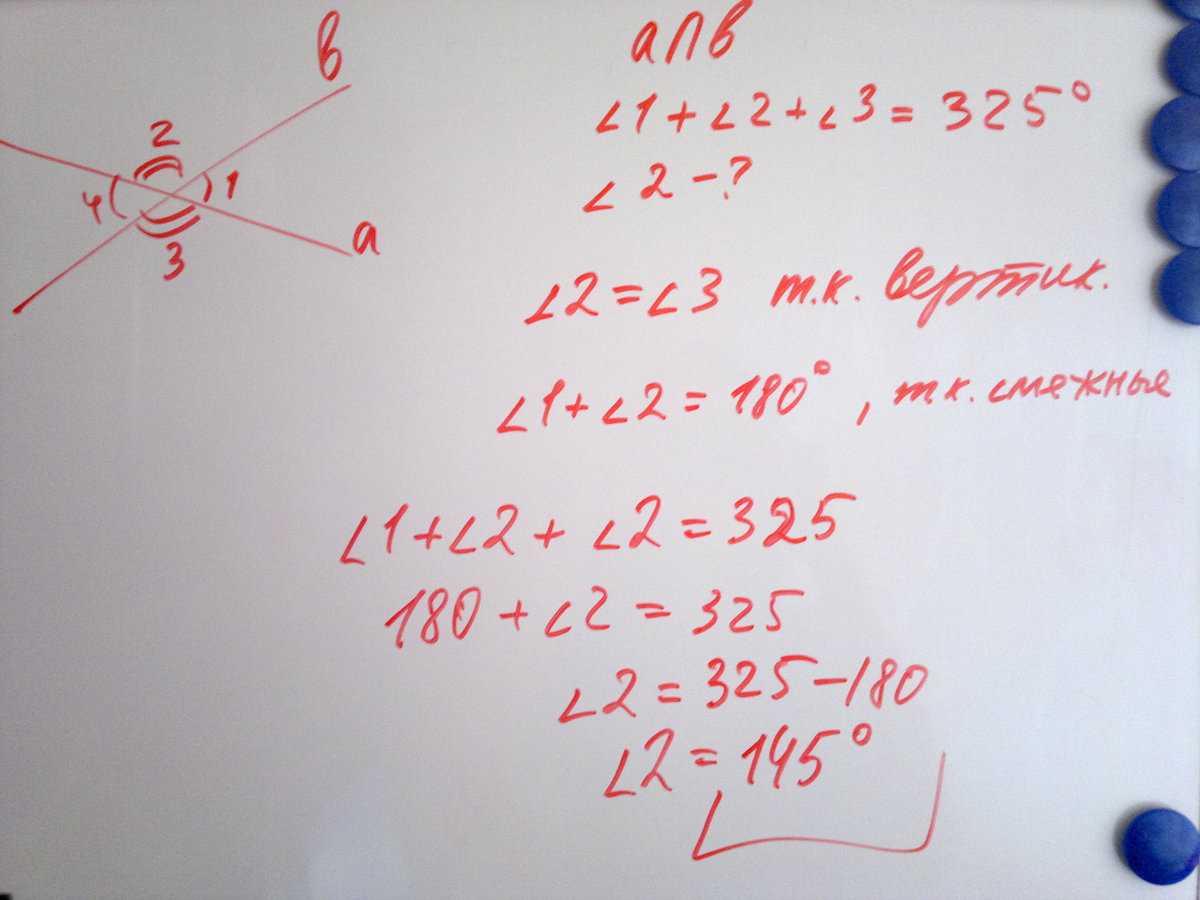 в
2
4
1
3
a
a∩в
∠1+∠2+∠3=325°
∠2-?
∠2=∠3 т.к. вертик.
∠1+∠2=180°, т.к. смежные
∠1+∠2+∠2=325
180+∠2=325
∠2=325-180
∠2=145°